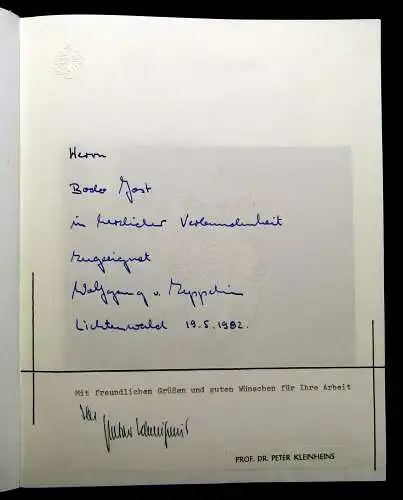 Herrn
Bodo Jost
in herzlicher Verbundenheit
zugeeignet
Wolfgang v. Zeppelin
Lichtenwald 19.5.1982.
Mit freundlichen Grüßen und guten Wünschen für Ihre Arbeit
Ihr
PROF. DR. PETER KLEINHEINS